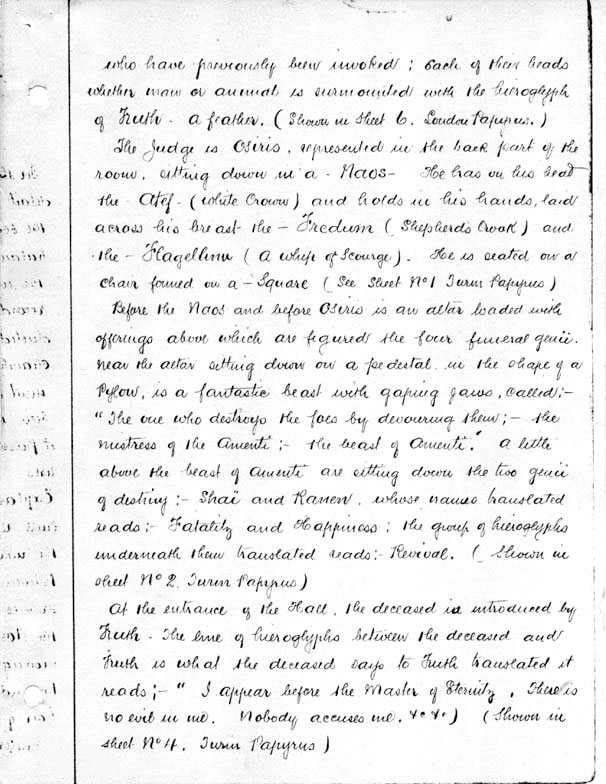 who have previously been invoked; Each of their heads
whether man or animal is surmounted with the hieroglyph
of Truth - a feather. (Shown in sheet 6. London Papyrus.)
The Judge is Osiris, represented in the back part of the
room, sitting down in a - Naos - He has on his head
the - Atef - (White Crown) and holds in his hands, laid
across his breast the - Fredum (Shepherds Crook) and
the - Flagellum (A whip of Scourge). He is seated on a
chair formed on a - Square (See Sheet No 1 Turin Papyrus)
Before the Naos and before Osiris is an altar loaded with
offerings above which are figured the four funeral genii.
Near the altar sitting down on a pedestal in the shape of a
Pylow, is a fantastic beast with gaping jaws, called;-
"The one who destroys the foes by devouring them;- the
mistress of the Amenti;- the beast of Amenti." A little
above the beast of Amenti are sitting down the two genii
of destiny;- Shaï and Ranen, whose names translated
reads;- Fatality and Happiness; the group of hieroglyphs
underneath them translated reads;- Revival. (Shown in
sheet No 2. Turin Papyrus)
At the entrance of the Hall, the deceased is introduced by
Truth - The line of hieroglyphs between the deceased and
Truth is what the deceased says to Truth translated it
reads;- "I appear before the Master of Eternity, There is
no evil in me. Nobody accuses me. &c &c) (Shown in
sheet No 4. Turin Papyrus)